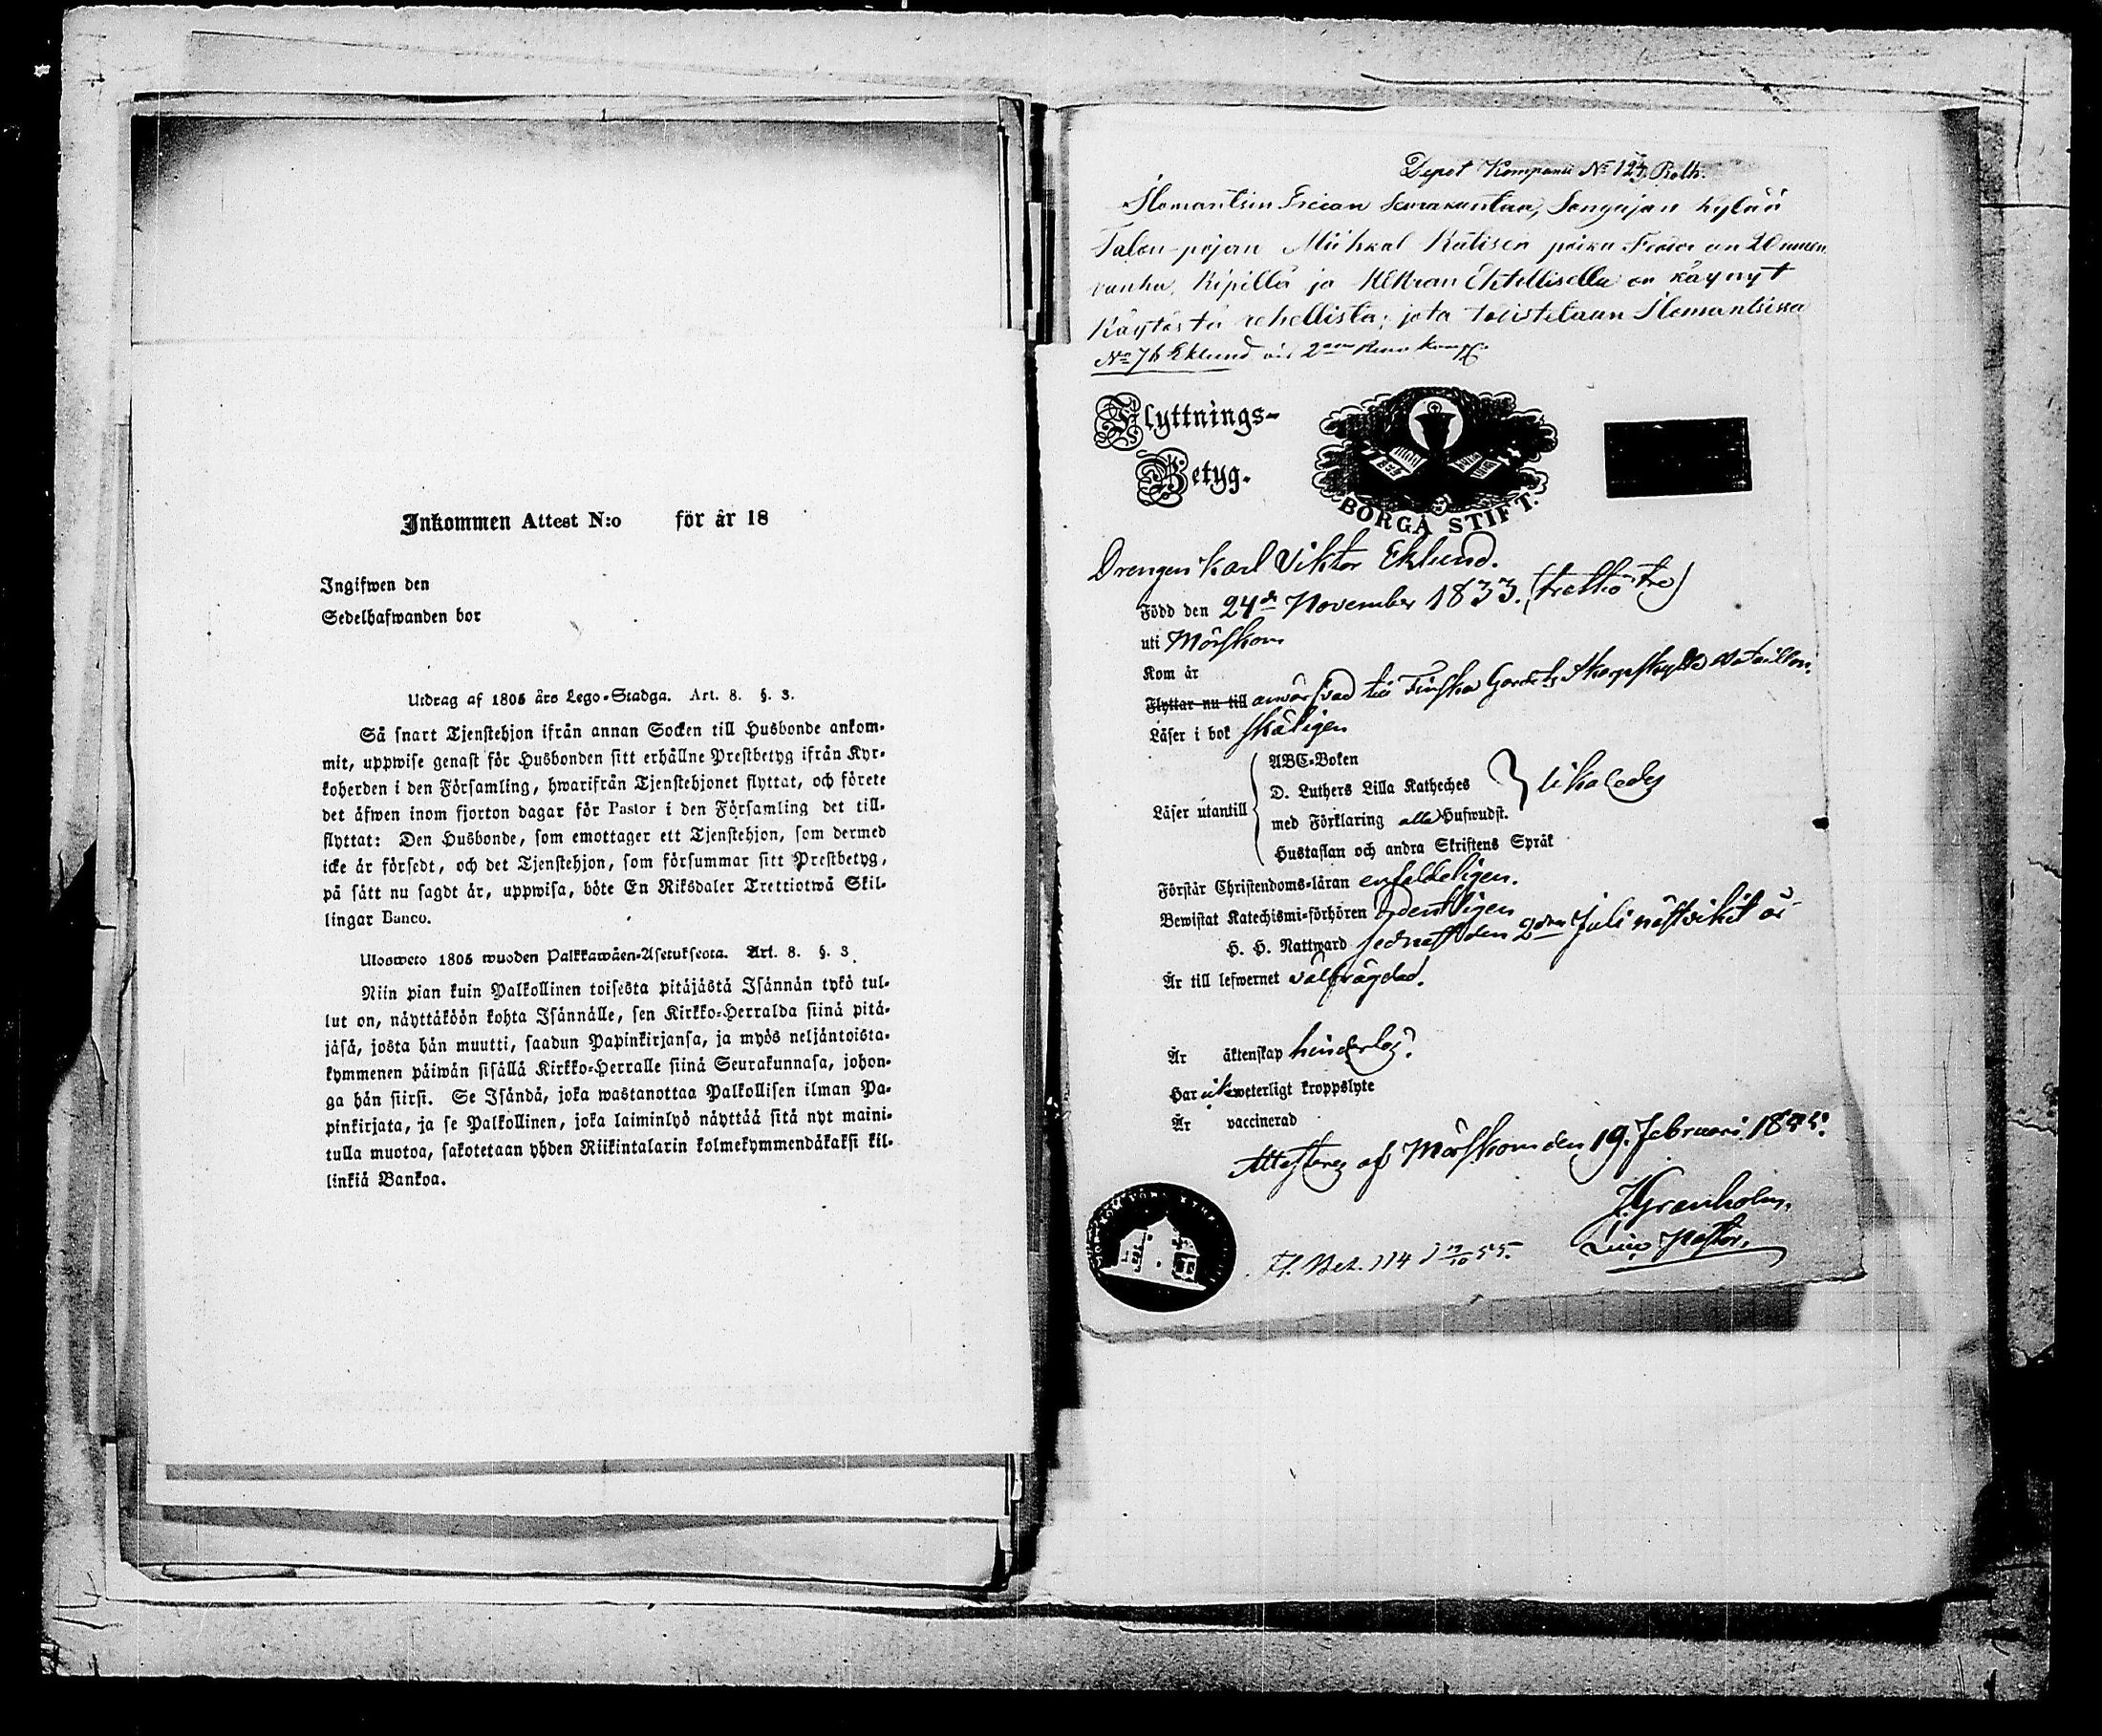 Inkommen Attest N:o för år 18
Ingifwen den
Sedelhafwanden bor
Utdrag af 1805 års Lego-Stadga. Art. 8. §. 3.
Så snart Tjenstehjon ifrån annan Socken till Husbonde ankom-
mit, uppwise genast för Husbonden sitt erhållne Prestbetyg ifrån Kyr-
koherden i den Församling, hwarifrån Tjenstehjonet flyttat, och förete
det äfwen inom fjorton dagar för Pastor i den Församling det till-
flyttat: Den Husbonde, som emottager ett Tjenstehjon, som dermed
icke är försedt, och det Tjenstehjon, som försummar sitt Prestbetyg,
på sätt nu sagdt är, uppwisa, böte En Riksdaler Trettiotwå Skil-
lingar Banco.
Ulosweto 1805 wuoden Palkkawäen-Asetuksesta. Art. 8. §. 3.
Niin pian kuin Palkollinen toisesta pitäjästä Isännän tykö tul-
lut on, näyttäköön kohta Isännälle, sen Kirkko-Herralda siinä pitä-
jäsä, josta hän muutti, saadun Papinkirjansa, ja myös neljäntoista-
kymmenen päiwän sisällä Kirkko-Herralle siinä Seurakunnasa, johon-
ga hän siirsi. Se Isändä, joka wastanottaa Palkollisen ilman Pa-
pinkirjata, ja se Palkollinen, joka laiminlyö näyttää sitä nyt maini-
tulla muotoa, sakotetaan yhden Riikintalarin kolmekymmendäkaksi kil-
linkiä Bankoa.
Depot Kompanie No 124 Roth.
Ilomantsin Grecan Seurakuntaa, Sonyajan kylää
Talon-pojan Miihkal Ratisen poika Fedor on 20
vanha, Ripillä ja HERran Ehtollisella on käynyt
Käytöstä rehellistä; jota todistetaan Ilomantsissa
No 76 Eklund vid 2
Flyttnings-
Betyg.
BORGÅ STIFT.
Drengen Karl Viktor Eklund.
Född den 24de November 1833. (trettio tre)
uti Mörskom
Kom år
Flyttar nu till anvärfvad till Finska Gardets Skarpskytte Bataillon.
Läser i bok skäligen
Läser utantill
ABC-Boken
D. Luthers Lilla Katheches
med Förklaring alla Hufwudst.
Hustaflan och andra Skriftens Språk
likaledes
Förstår Christendoms-läran enfaldeligen.
Bewistat Katechismi-förhören ordentligen
H. H. Nattward sednast den 2dra Juli nästvikit år
Är till lefwernet välfrägdad.
Är äktenskap hinderlös.
Har icke weterligt kroppslyte
Är vaccinerad
Attesteras af Mörskom den 19. Februari 1855.
J. Granholm,
Pastor.
Fl. Bet. 114 55.